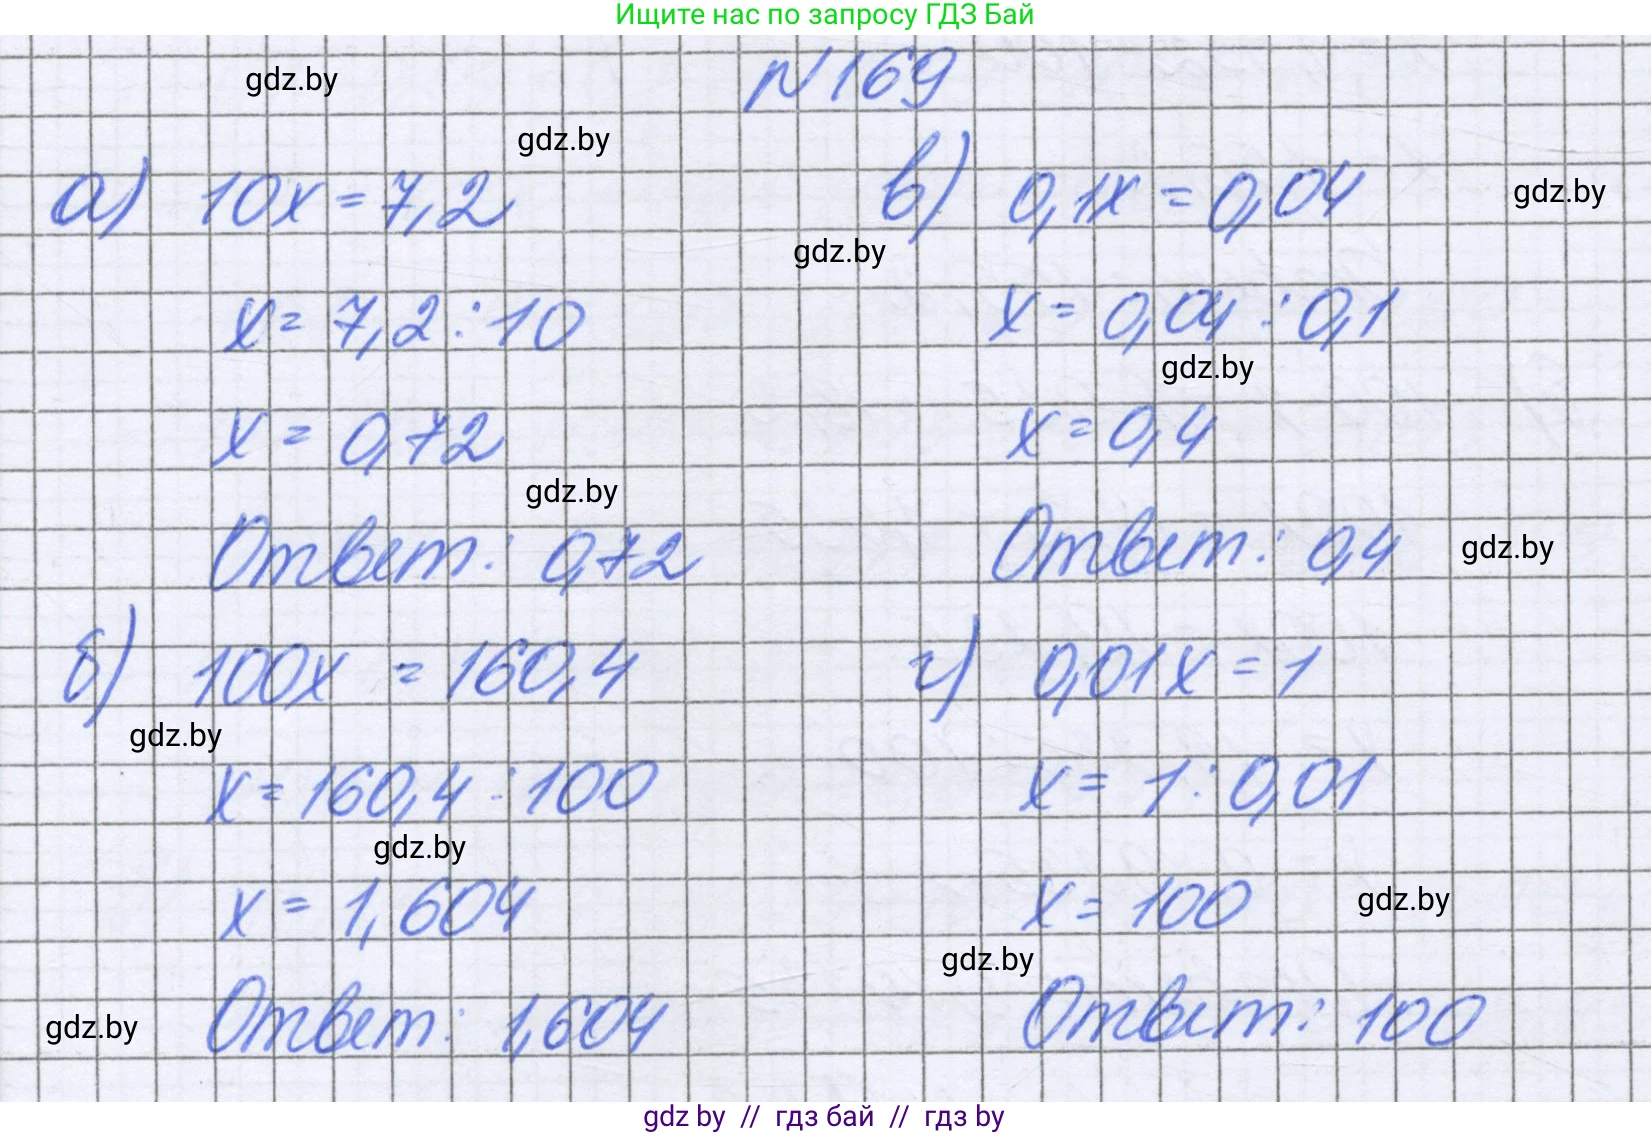 Ищите нас по запросу ГДЗ Бай
N169
gdz.by
gdz.by
а) 10x = 7,2
x = 7,2 : 10
x = 0,72
gdz.by
Ответ: 0,72
б) 100x = 160,4
gdz.by
x = 160,4 : 100
gdz.by
x = 1,604
Ответ: 1,604
gdz.by
в) 0,1x = 0,04
gdz.by
gdz.by
x = 0,04 : 0,1
gdz.by
x = 0,4
Ответ: 0,4
gdz.by
г) 0,01x = 1
x = 1 : 0,01
x = 100
gdz.by
gdz.by
Ответ: 100
gdz by // гдз бай // гдз by